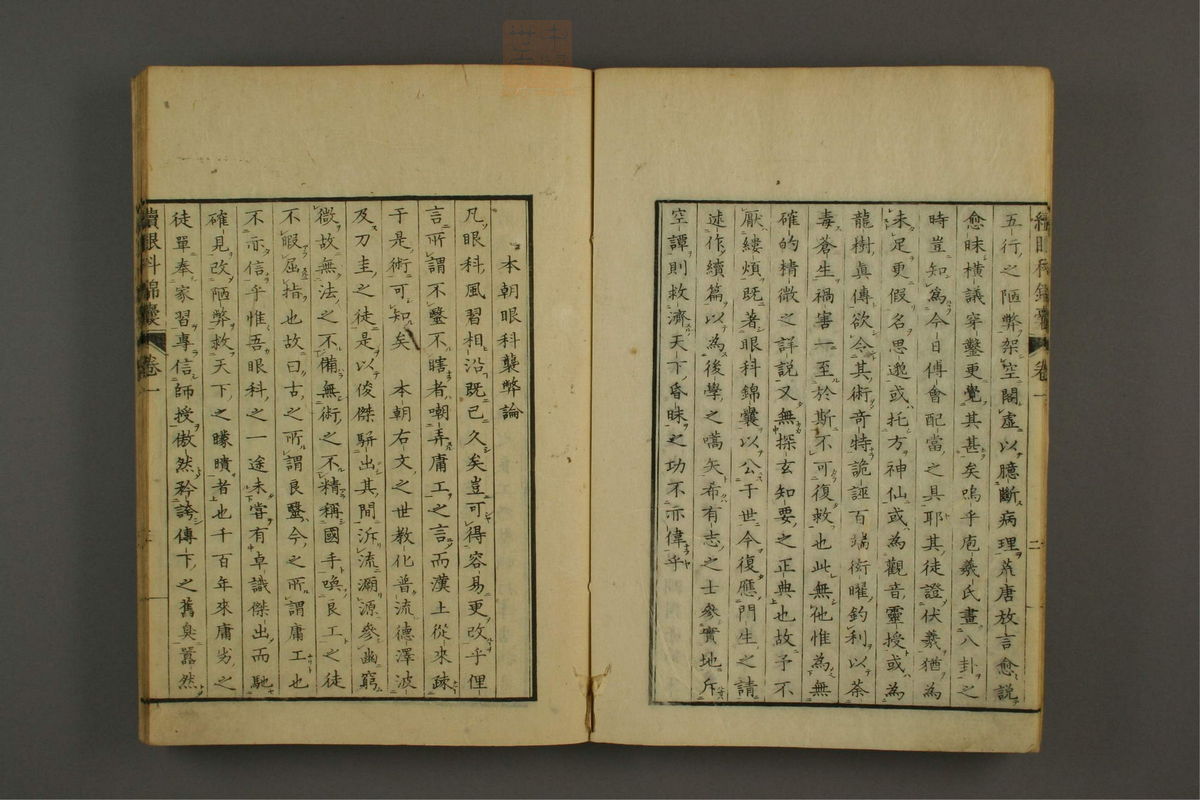 五行之陋弊架空閣虛以臆斷病理荒唐放言愈説
愈昧横議穿鑿更覺其甚矣嗚乎庖羲氏畫八卦之
時豈知爲今日傅會配當之具耶其徒證伏羲猶爲
未足更假名思邈或托方神仙或爲觀音靈授或爲
龍樹眞傳欲令其術奇特詭誣百端衒曜釣利以荼
毒蒼生禍害一至於斯不可復救也此無他惟爲無
確的精微之詳説又無探玄知要之正典也故予不
厭縷煩既著眼科錦囊以公于世今復應門生之請
述作續篇以為後學之嚆矢希有志之士參實地斥
空譚則救濟天下昏昧之功不亦偉乎
續眼科錦囊 卷一 二
本朝眼科襲弊論
凡眼科風習相沿既已久矣豈可得容易更改乎俚
言所謂不鑿不瞎者嘲弄庸工之言而漢土從來疎
于是術可知矣 本朝右文之世教化普流德澤波
及刀圭之徒是以俊傑駢出其間泝流溯源參幽窮
微故無法之不備無術之不精稱國手喚良工之徒
不暇屈指也故曰古之所謂良醫今之所謂庸工也
不亦信乎惟吾眼科之一途未嘗有卓識傑出而馳
確見改陋弊救天下之矇瞶者也千百年來庸劣之
徒單奉家習專信師授傲然矜誇傳下之舊臭囂然
續眼科錦囊 卷一 三